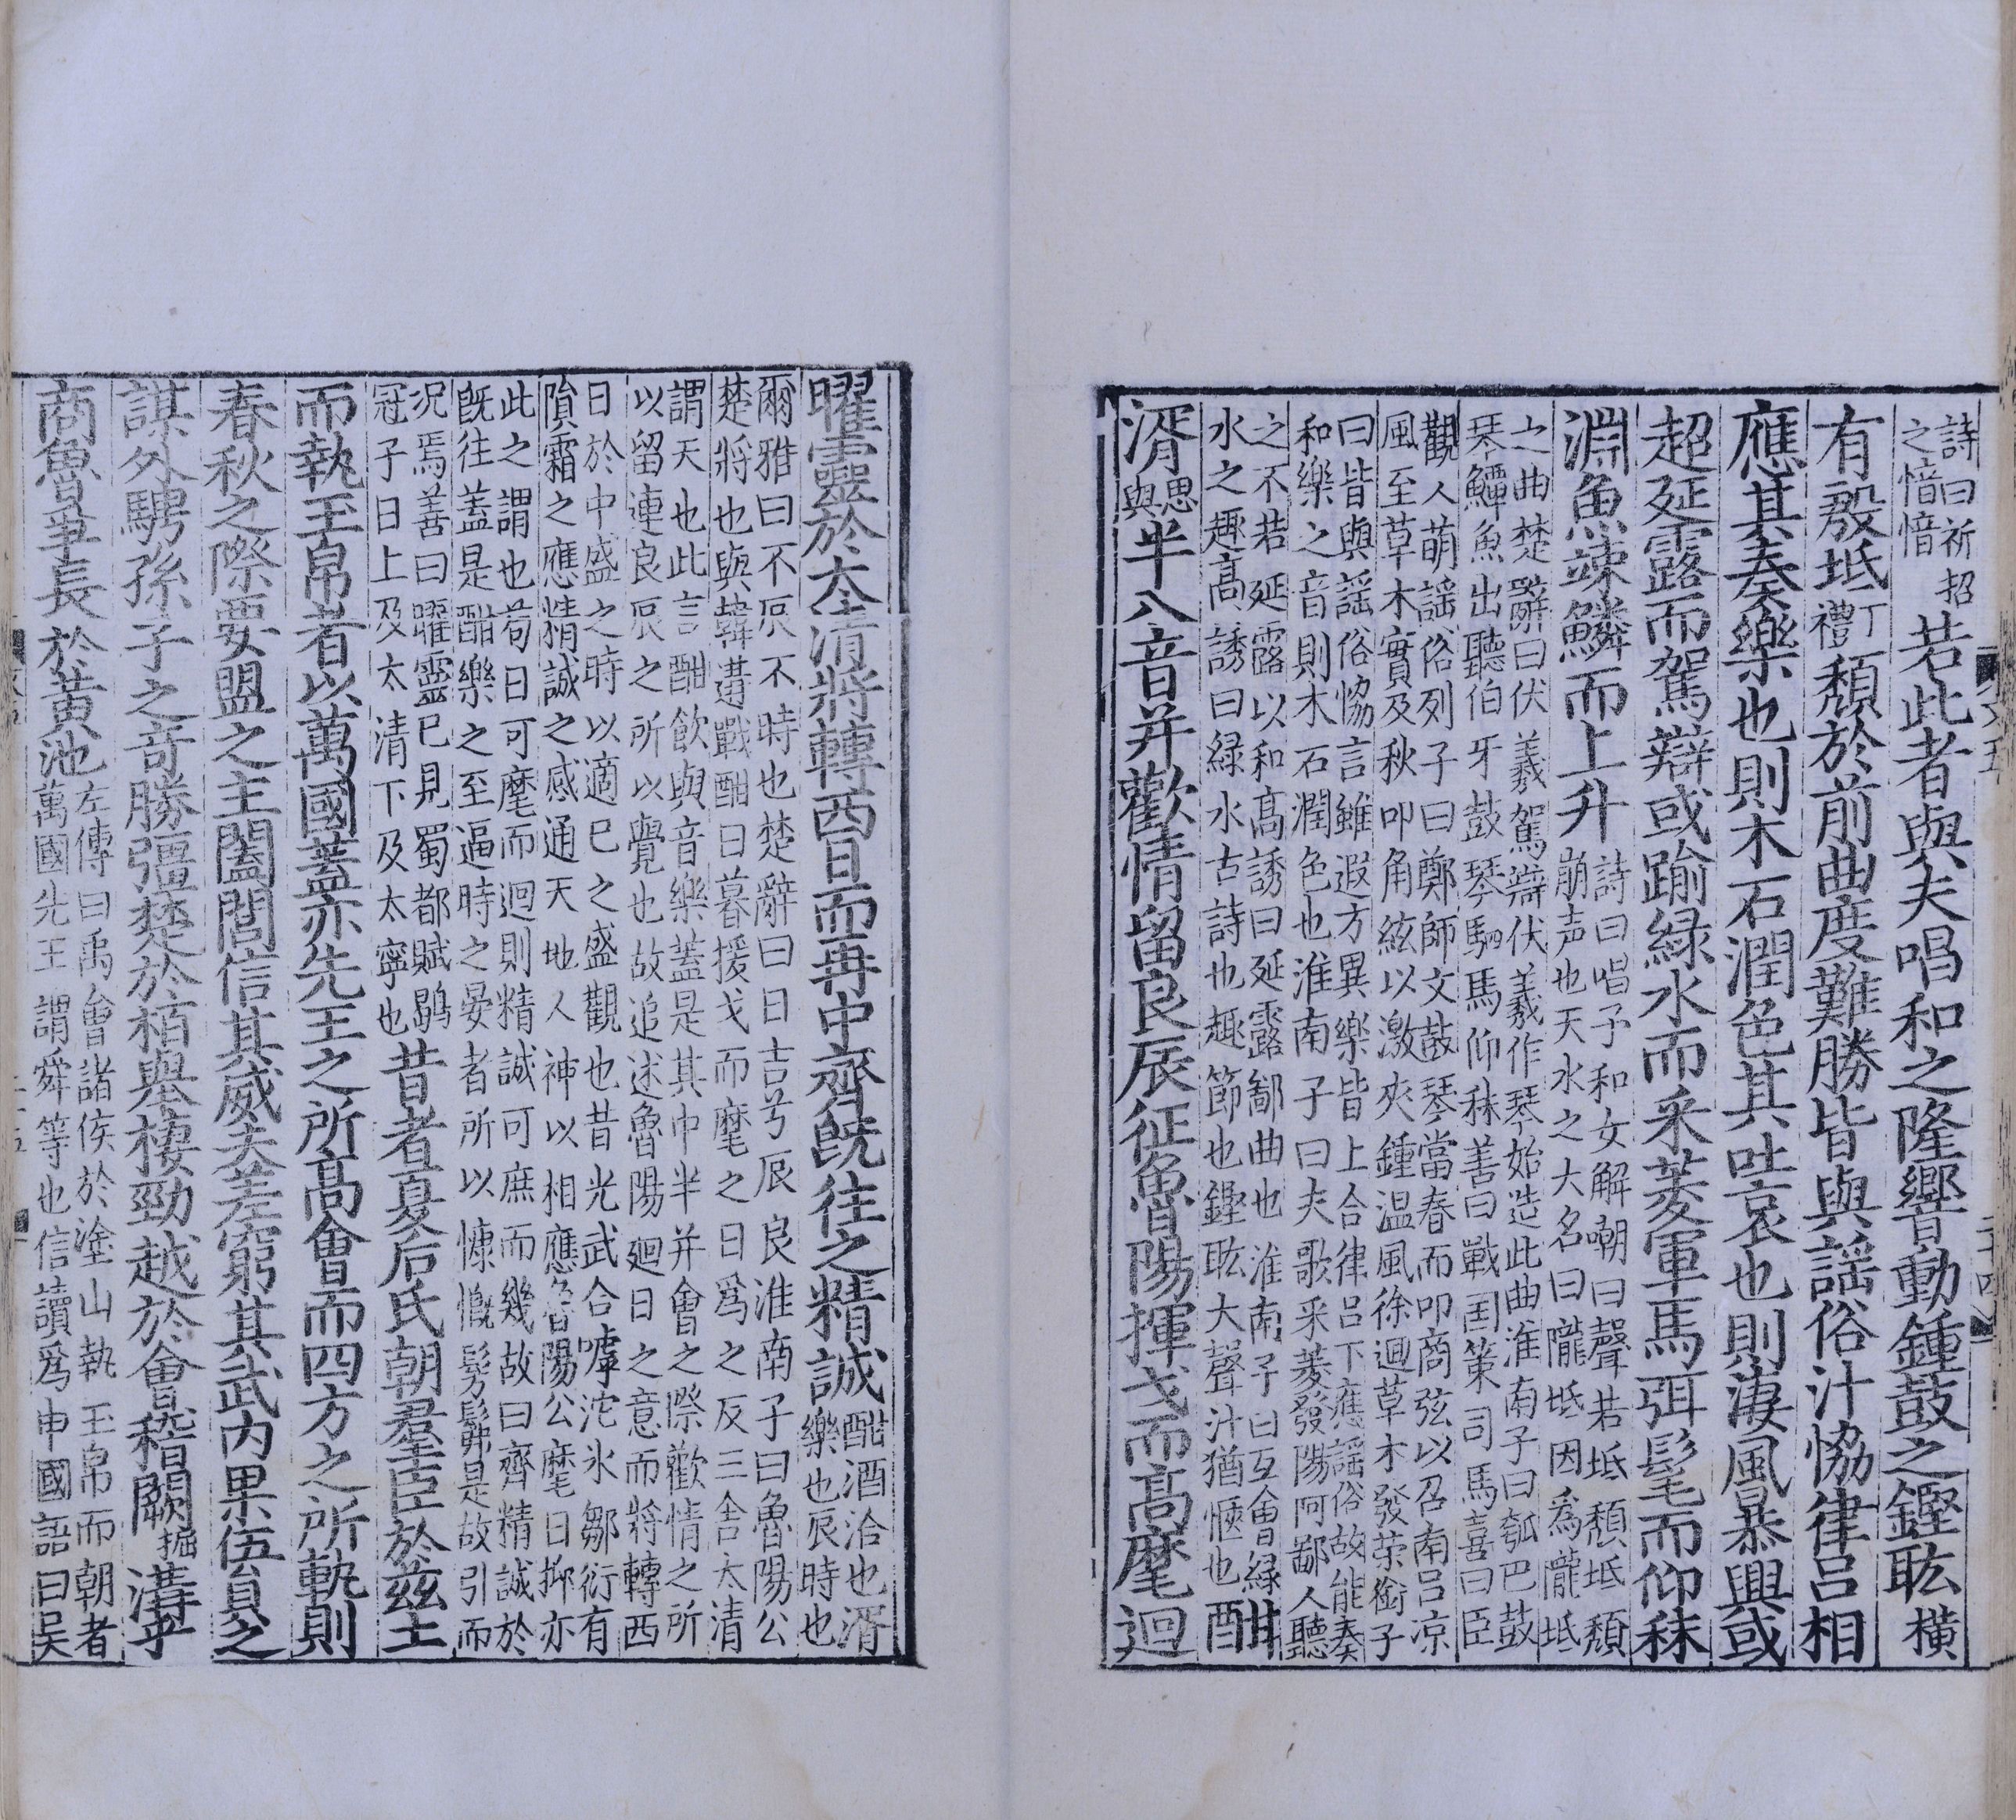 詩曰祈招
之愔愔
若此者與夫唱和之隆響動鍾鼓之鏗耾橫
有殷坻
丁
禮
頹於前曲度難勝皆與謡俗汁恊律吕相
應其奏樂也則木石潤色其吐哀也則淒風暴興或
超延露而駕辯或踰緑水而采菱軍馬弭髦而仰秣
淵魚竦鱗而上升
詩曰唱予和女解嘲曰聲若坻頹坻頹
崩声也天水之大名曰隴坻因爲隴坻
之曲楚辭曰伏羲駕辯伏羲作琴始造此曲淮南子曰瓠巴鼓
琴鱏魚出聽伯牙鼓琴駟馬仰秣善曰戰国策司馬喜曰臣
觀人萌謡俗列子曰鄭師文鼓琴當春而叩商弦以召南吕凉
風至草木實及秋叩角絃以激夾鍾温風徐迴草木發荣銜子
曰皆與謡俗恊言雖遐方異樂皆上合律吕下應謡俗故能奏
和樂之音則木石潤色也淮南子曰夫歌采菱發陽阿鄙人聽
之不若延露以和髙誘曰延露鄙曲也淮南子曰互會緑
水之趣髙誘曰緑水古詩也趣節也鏗耾大聲汁猶愜也
酣
湑
思
與
半八音并歡情留良辰征魯陽揮戈而髙麾迴
曜靈於太清將轉西日而再中齊旣往之精誠
酣酒洽也湑
樂也辰時也
爾雅曰不辰不時也楚辭曰日吉兮辰良淮南子曰魯陽公
楚將也與韓遘戰酣日暮援戈而麾之日爲之反三舍太清
謂天也此言酣飲與音樂蓋是其中半并會之際歡情之所
以留連良辰之所以覺也故追述魯陽廻日之意而將轉西
日於中盛之時以適已之盛觀也昔光武合嘑沱氷鄒衍有
隕霜之應精誠之感通天地人神以相應魯陽公麾日抑亦
此之謂也苟日可麾而迴則精誠可庶而幾故曰齊精誠於
旣往盖是酣樂之至逼時之晏者所以慷慨髣髴是故引而
况焉善曰曜靈已見蜀都賦鶡
冠子曰上及太清下及太寧也
昔者夏后氏朝羣臣於兹土
而執玉帛者以萬國蓋亦先王之所髙會而四方之所軌則
春秋之際要盟之主闔閭信其威夫差窮其武内果伍負之
謀外騁孫子之奇勝彊楚於栢舉棲勁越於會稽闕
掘
溝乎
商魯爭長於黄池
左傳曰禹會諸侯於塗山執玉帛而朝者
萬國先王謂舜等也信讀爲申國語曰吴